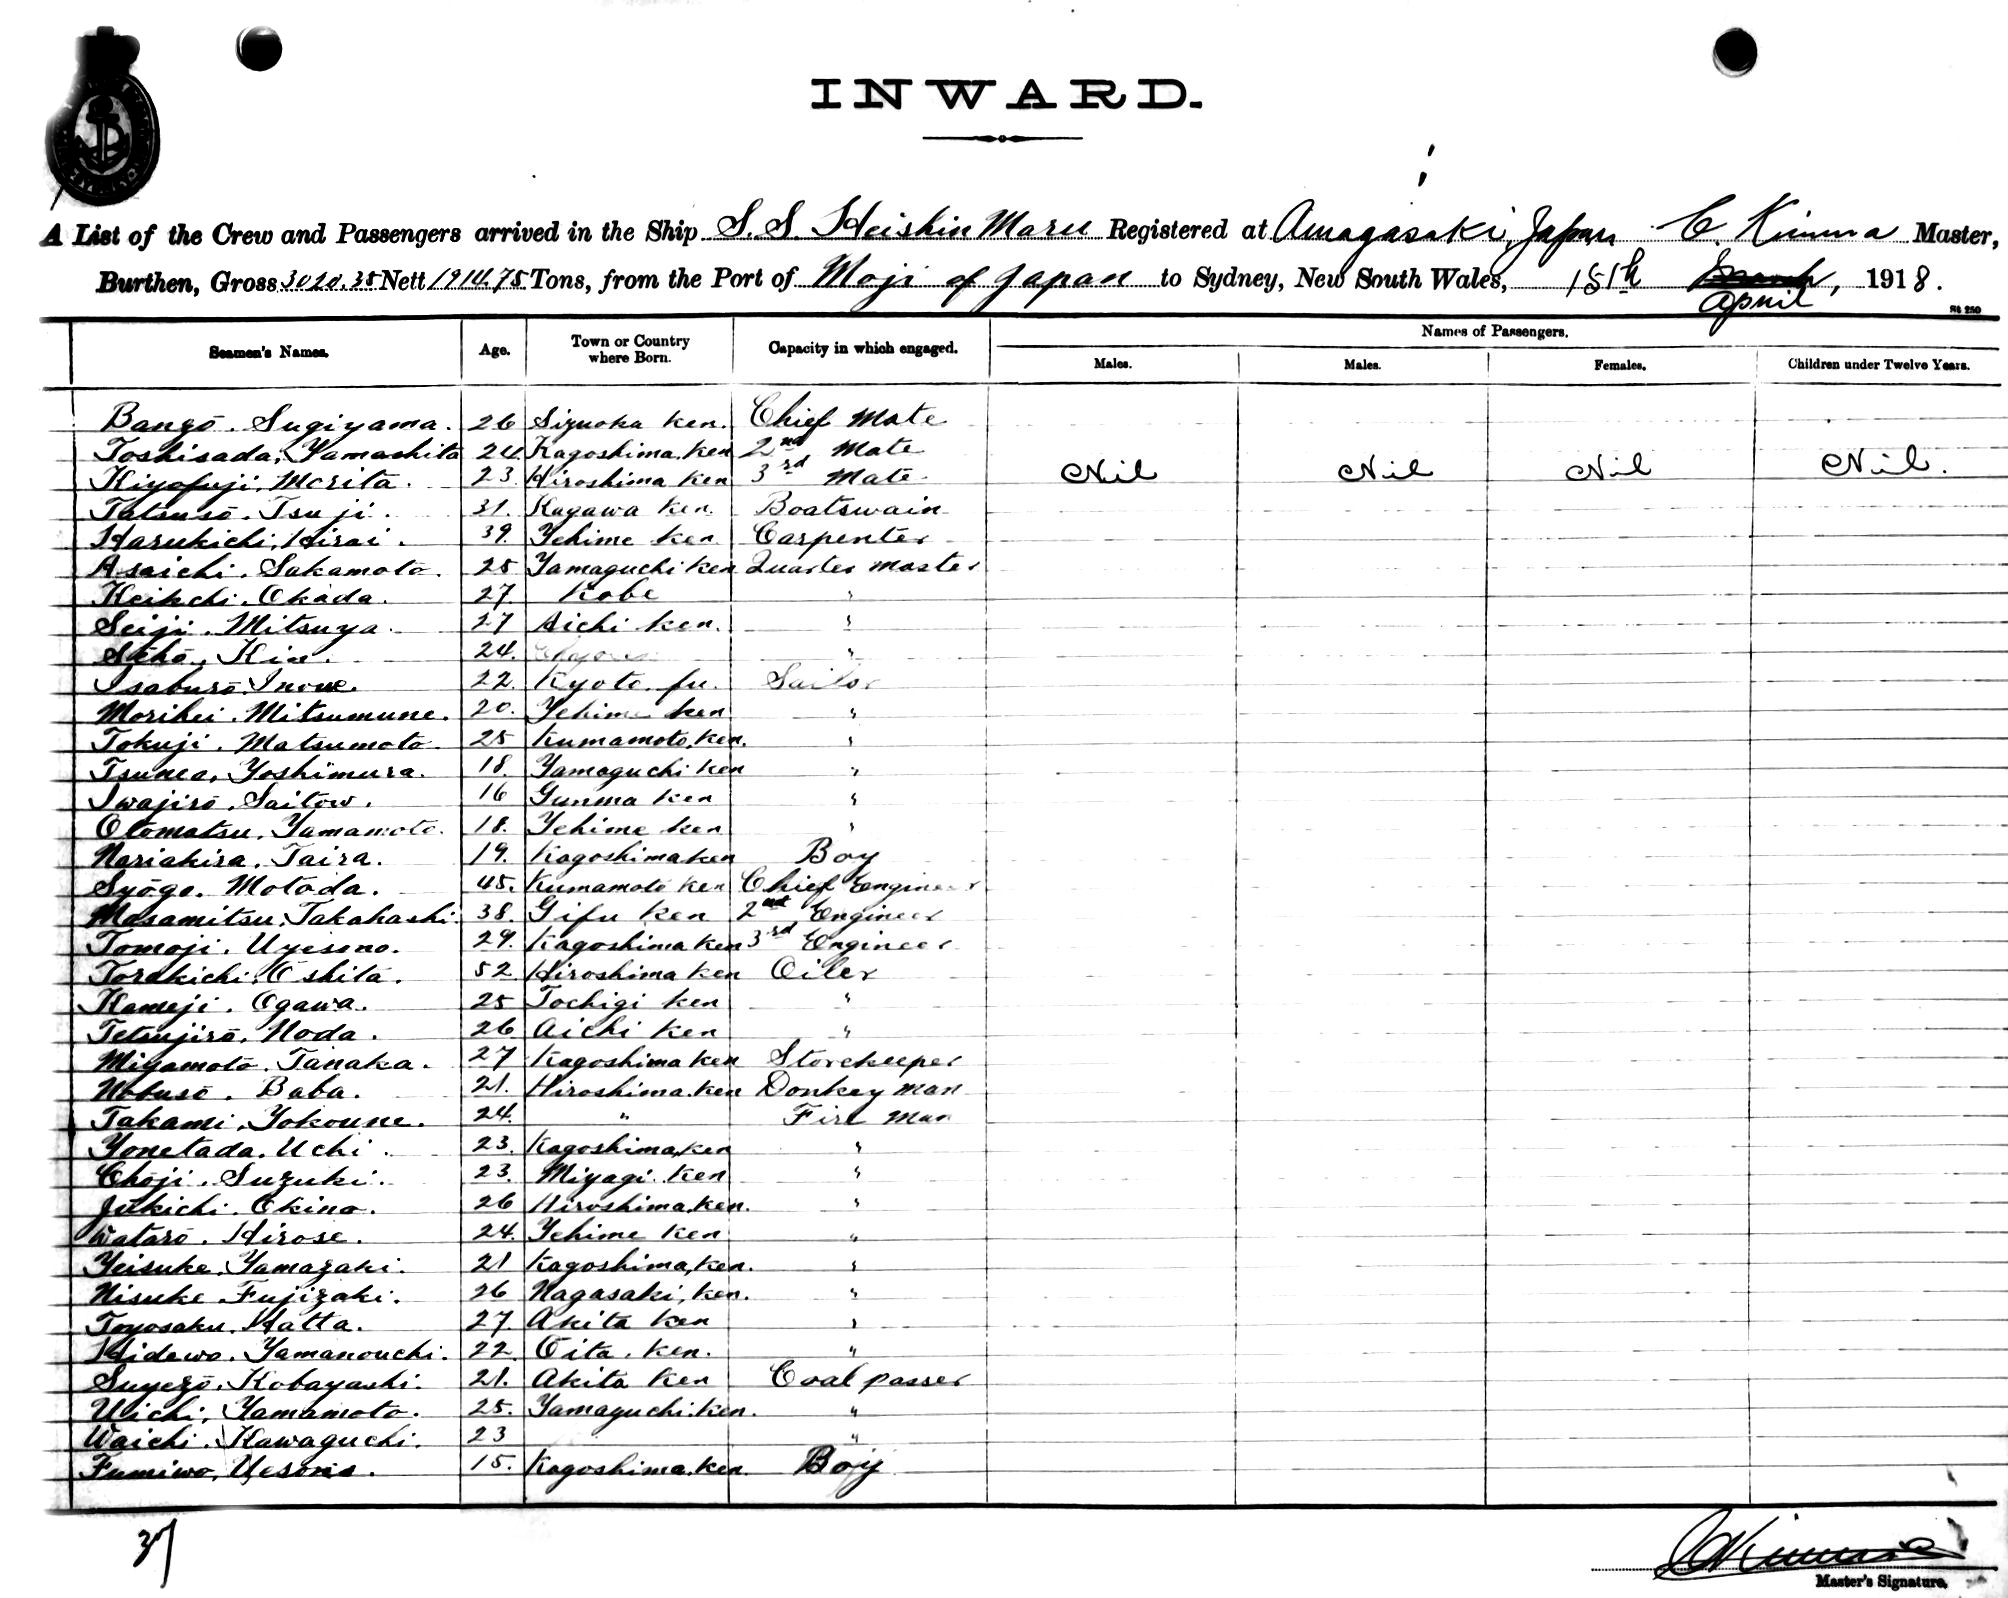 INWARD.
A List of the Crew and Passengers arrived in the Ship S. S. Heishin Maru Registered at Amagasaki, Japan C. Kimura Master,
Burthen, Gross 3020.35 Nett 1914.75 Tons, from the Port of Moji of Japan to Sydney, New South Wales, 15th March April, 1918.
St 250
Names of Passengers.
Seamen's Names. Age. Town or Country where Born. Capacity in which engaged. Males. Males. Females. Children under Twelve Years.
Banzō. Sugiyama. 26 Sizuoka Ken. Chief Mate
Toshisada, Yamashita 24 Kagoshima Ken 2nd Mate
Kiyofuji, Morita. 23. Hiroshima Ken 3rd Mate. Nil Nil Nil Nil.
Tatsusō. Tsuji. 31. Kagawa Ken. Boatswain
Harukichi, Hirai. 39. Yehime Ken Carpenter
Asaichi. Sakamoto. 25 Yamaguchi Ken Quarter master
Keikchi. Okada. 27. Kobe "
Seiji. Mitsuya. 27 Aichi Ken. "
Kin. 24. "
Isaburō. Inoue. 22. Kyoto. fu. Sailor
Morihei. Mitsumune. 20. Yehime Ken "
Tokuji. Matsumoto 25 Kumamoto, Ken. "
Tsuneo, Yoshimura. 18. Yamaguchi Ken "
Iwajirō. Saitow. 16 Gunma Ken "
Otomatsu. Yamamoto. 18. Yehime Ken "
Noriakira. Taira. 19. Kagoshima Ken Boy
Syōgo. Motoda. 45. Kumamoto Ken Chief Engineer
Masamitsu, Takahashi. 38. Gifu Ken 2nd Engineer
Tomoji. Uyesono. 29. Kagoshima Ken 3rd Engineer
Torakichi. Oshita. 52 Hiroshima Ken Oiler
Kameji. Ogawa. 25 Tochigi Ken "
Tetsujirō. Noda. 26 Aichi Ken "
Miyamoto. Tanaka. 27 Kagoshima Ken Storekeeper
Nobusō. Baba. 21. Hiroshima. Ken Donkey man
Takami, Yokoune. 24. " Fire Man
Yonetada. Uchi. 23. Kagoshima, Ken "
Chōji. Suzuki. 23. Miyagi. Ken "
Jūkichi. Okino. 26 Hiroshima, Ken. "
Watarō. Hirose. 24. Yehime Ken "
Yeisuke. Yamazaki. 21 Kagoshima, Ken. "
Nisuke. Fujizaki. 26 Nagasaki, Ken. "
Toyosaku. Hatta. 27. Akita Ken "
Hidewo. Yamanouchi. 22. Oita. Ken. "
Suyezō. Kobayashi. 21. Akita Ken Coal passer
Uichi, Yamamoto. 25. Yamaguchi. Ken. "
Waichi. Kawaguchi. 23 "
Fumiwo, Uesono. 15. Kagoshima. Ken. Boy
37
C Kimura
Master's Signature.